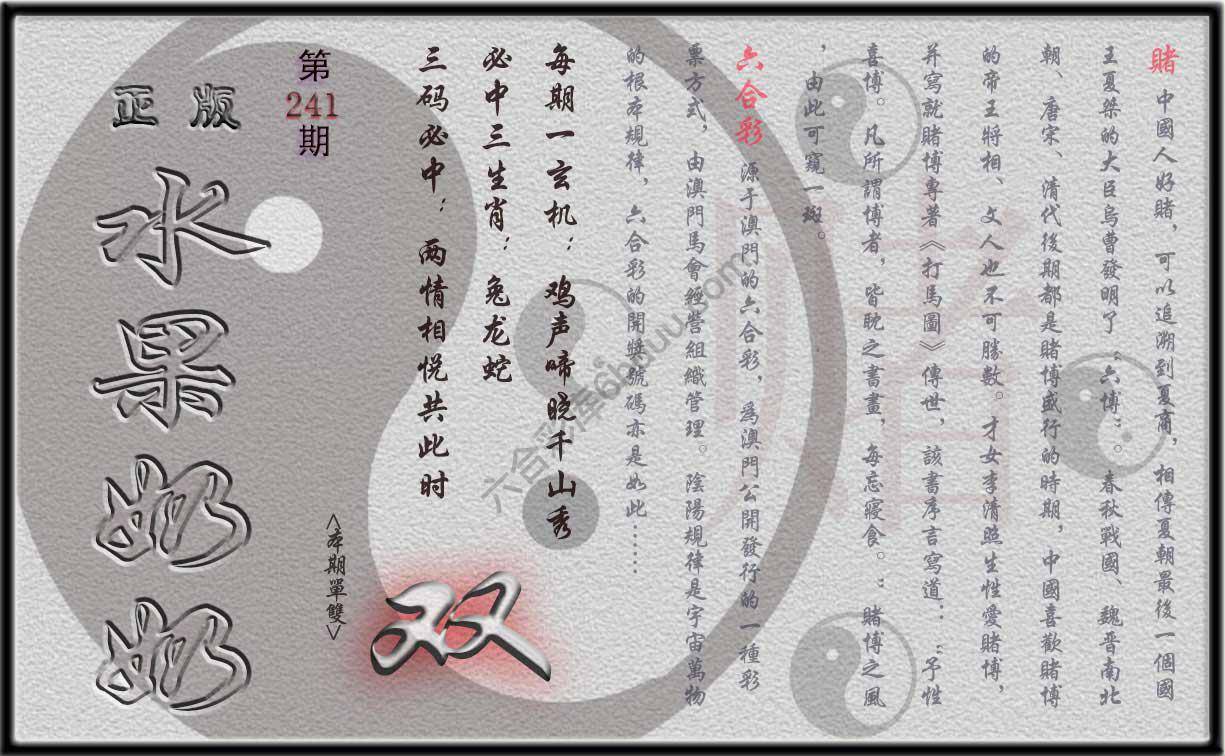 賭 中國人好賭，可以追溯到夏商，相傳夏朝最後一個國
王夏桀的大臣烏曹發明了“六博”。春秋戰國、魏晋南北
朝、唐宋、清代後期都是賭博盛行的時期，中國喜歡賭博
的帝王將相、文人也不可勝數。才女李清照生性愛賭博，
并寫就賭博專著《打馬圖》傳世，該書序言寫道：“予性
喜博。凡所謂博者，皆耽之書畫，每忘寢食。”賭博之風
，由此可窺一斑。
六合彩 源于澳門的六合彩，為澳門公開發行的一種彩
票方式，由澳門馬會經營組織管理。陰陽規律是宇宙萬物
的根本規律，六合彩的開獎號碼亦是如此……
每期一玄机：鸡声啼晓千山秀
必中三生肖：兔龙蛇
三码必中：两情相悦共此时
<本期單雙>
双
第
241
期
正版
水果奶奶
賭
六合彩库6huuu.com